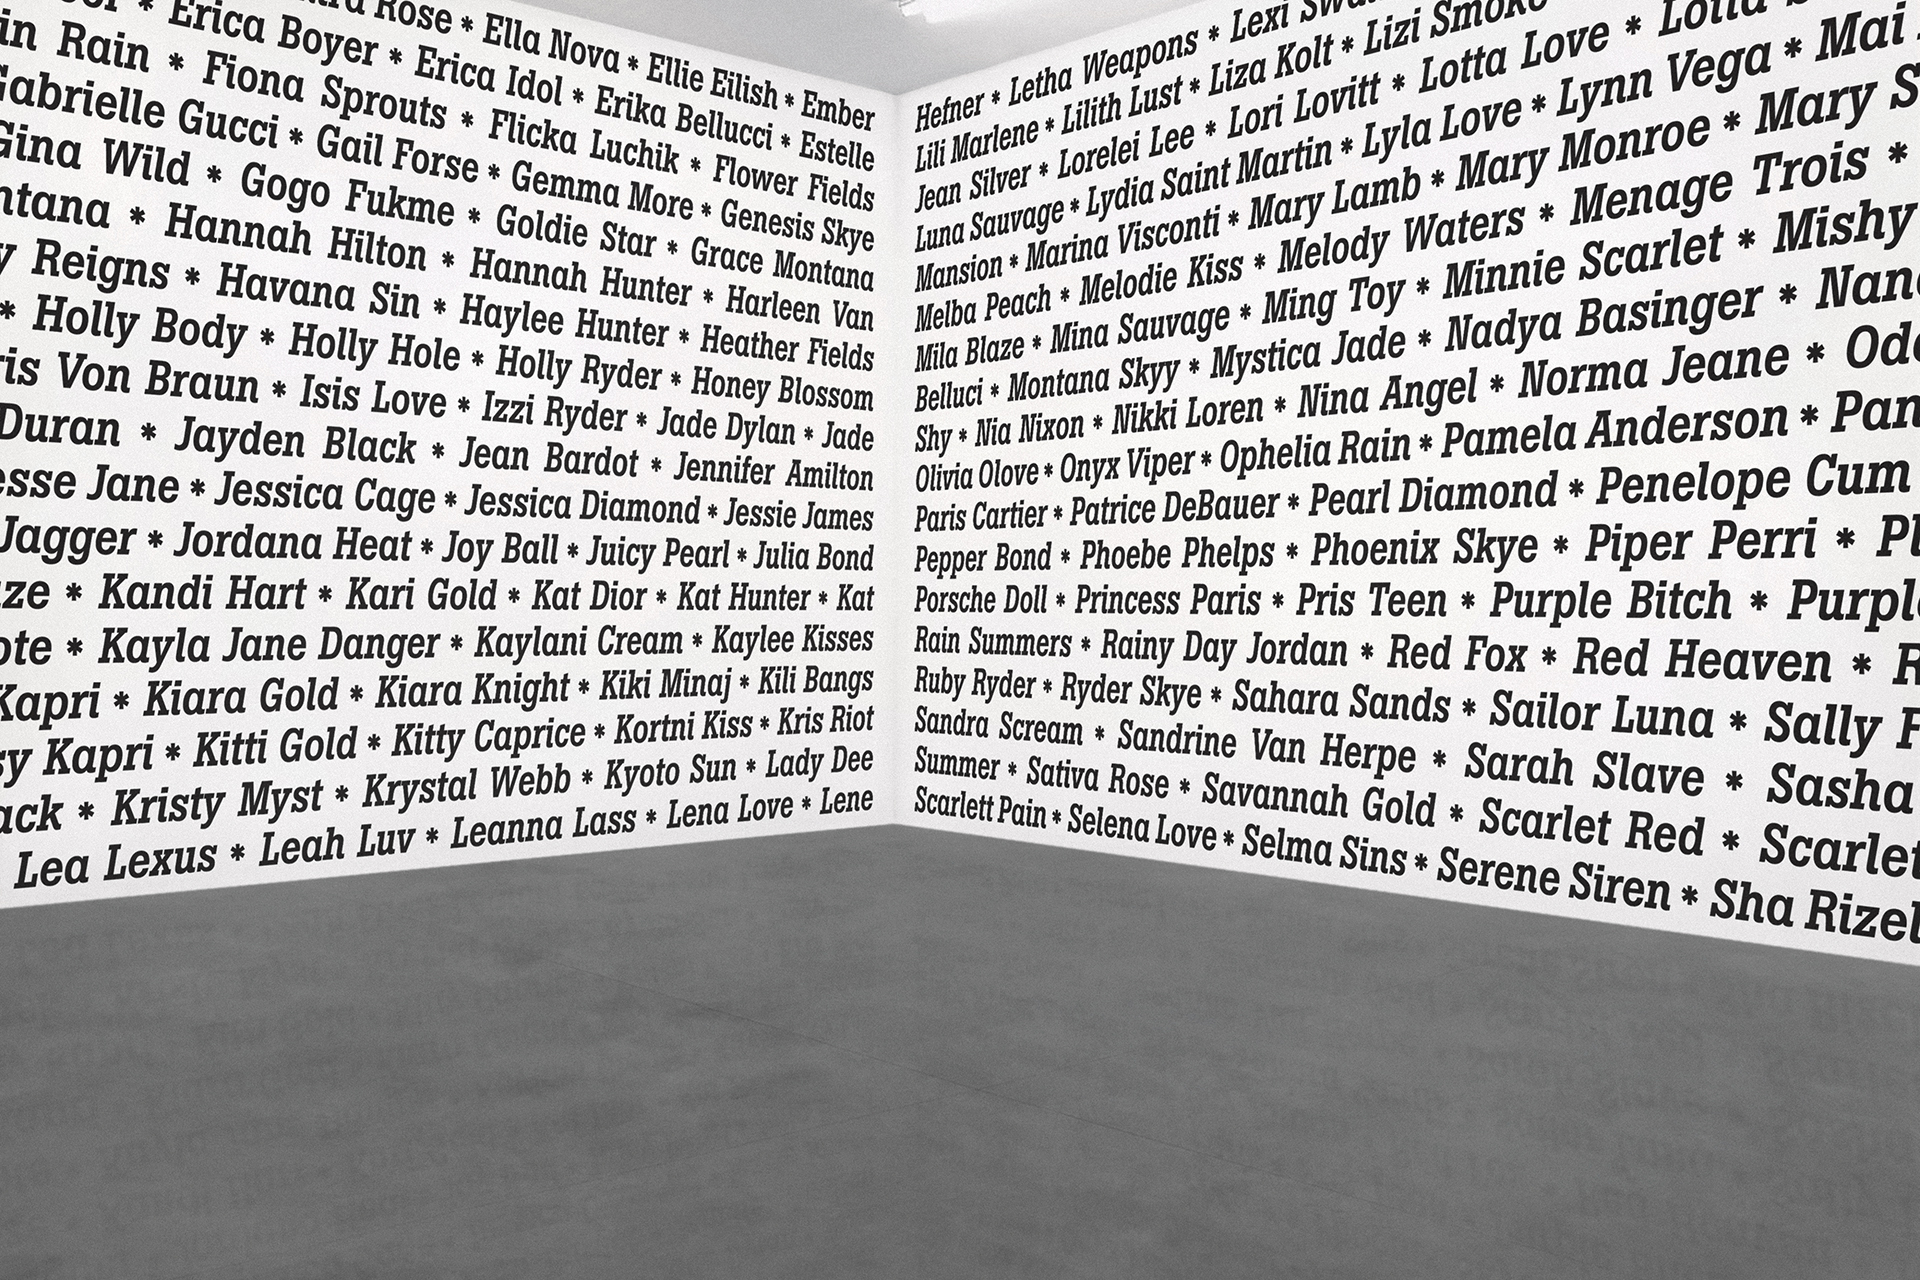 Rose * Ella Nova * Ellie Eilish * Ember
* Erica Boyer * Erica Idol * Erika Bellucci * Estelle
Rain * Fiona Sprouts * Flicka Luchik * Flower Fields
Gabrielle Gucci * Gail Forse * Gemma More * Genesis Skye
Gina Wild * Gogo Fukme * Goldie Star * Grace Montana
ntana * Hannah Hilton * Hannah Hunter * Harleen Van
y Reigns * Havana Sin * Haylee Hunter * Heather Fields
* Holly Body * Holly Hole * Holly Ryder * Honey Blossom
ris Von Braun * Isis Love * Izzi Ryder * Jade Dylan * Jade
Duran * Jayden Black * Jean Bardot * Jennifer Amilton
esse Jane * Jessica Cage * Jessica Diamond * Jessie James
Jagger * Jordana Heat * Joy Ball * Juicy Pearl * Julia Bond
ze * Kandi Hart * Kari Gold * Kat Dior * Kat Hunter * Kat
ote * Kayla Jane Danger * Kaylani Cream * Kaylee Kisses
Kapri * Kiara Gold * Kiara Knight * Kiki Minaj * Kili Bangs
sy Kapri * Kitti Gold * Kitty Caprice * Kortni Kiss * Kris Riot
ack * Kristy Myst * Krystal Webb * Kyoto Sun * Lady Dee
Lea Lexus * Leah Luv * Leanna Lass * Lena Love * Lene
Hefner * Letha Weapons * Lexi
Lili Marlene * Lilith Lust * Liza Kolt * Lizi Smoke
Jean Silver * Lorelei Lee * Lori Lovitt * Lotta Love * Lotta
Luna Sauvage * Lydia Saint Martin * Lyla Love * Lynn Vega * Mai
Mansion * Marina Visconti * Mary Lamb * Mary Monroe * Mary S
Melba Peach * Melodie Kiss * Melody Waters * Menage Trois *
Mila Blaze * Mina Sauvage * Ming Toy * Minnie Scarlet * Mishy
Belluci * Montana Skyy * Mystica Jade * Nadya Basinger * Nanc
Shy * Nia Nixon * Nikki Loren * Nina Angel * Norma Jeane * Ode
Olivia Olove * Onyx Viper * Ophelia Rain * Pamela Anderson * Pan
Paris Cartier * Patrice DeBauer * Pearl Diamond * Penelope Cum
Pepper Bond * Phoebe Phelps * Phoenix Skye * Piper Perri *
Porsche Doll * Princess Paris * Pris Teen * Purple Bitch * Purple
Rain Summers * Rainy Day Jordan * Red Fox * Red Heaven * R
Ruby Ryder * Ryder Skye * Sahara Sands * Sailor Luna * Sally F
Sandra Scream * Sandrine Van Herpe * Sarah Slave * Sasha
Summer * Sativa Rose * Savannah Gold * Scarlet Red * Scarlet
Scarlett Pain * Selena Love * Selma Sins * Serene Siren * Sha Rizel